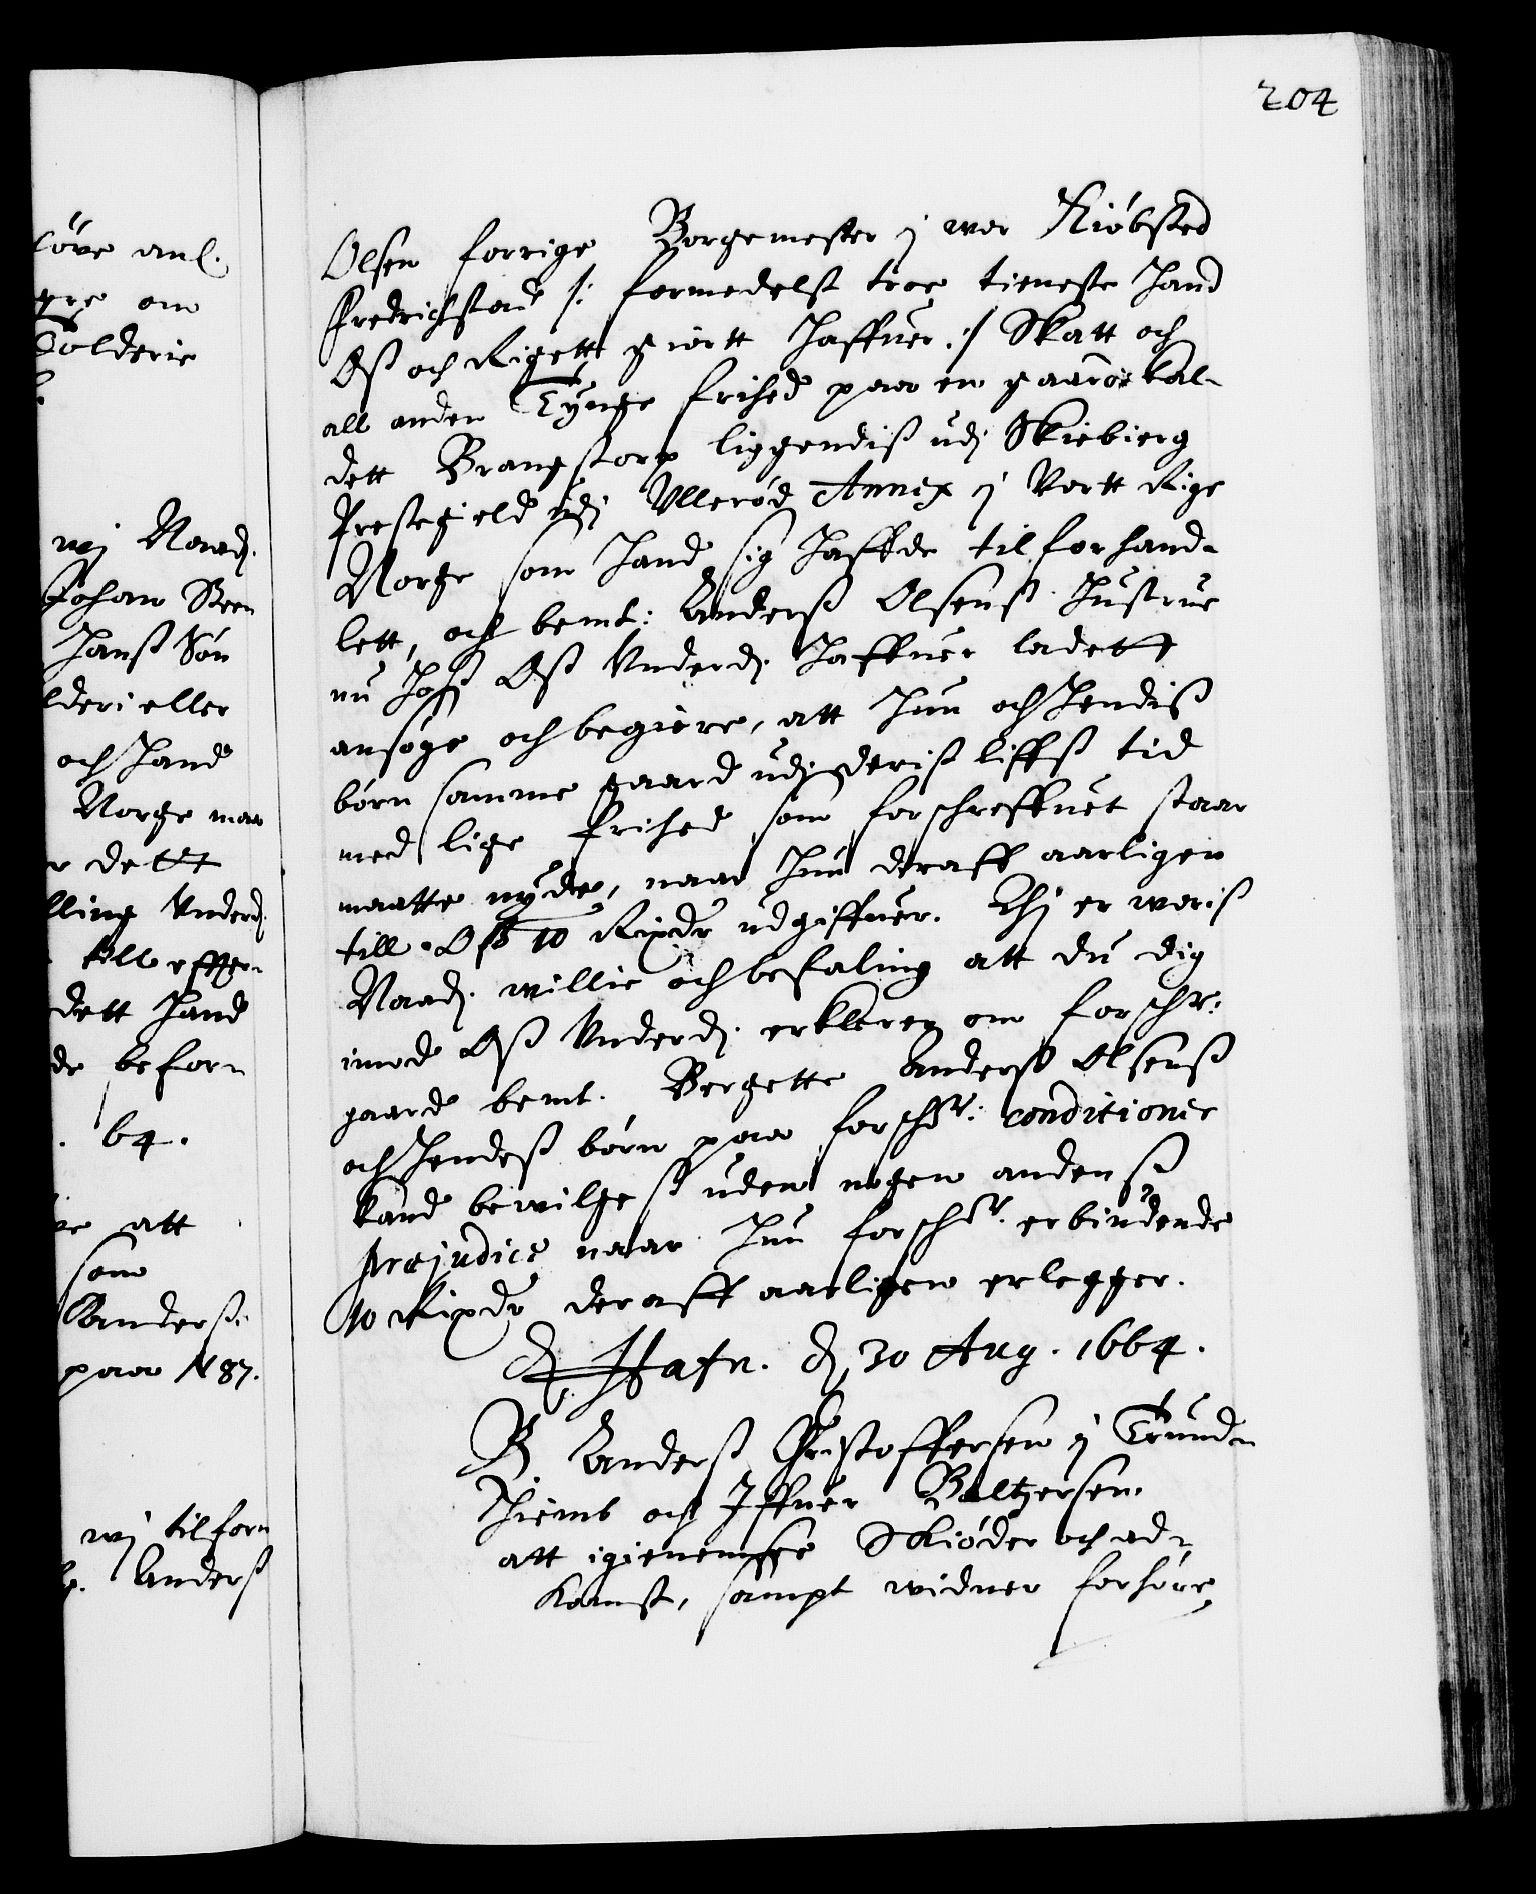 204
Olsen forrige Borgemester j wor Kiøbsted
Fredrichstad /: formedelst troe tieneste hand
Oß och Rigett giørtt haffuer :/ Skatt och
all anden Tynge frihed paa en gaard kal-
dett Brangstorp liggendiß udj Skiebierg
Prestegield udj Ullerød Annex j Vortt Rige
Norge som hand sig haffde tilforhand-
lett, och bemt: Anderß Olsenß hustrue
nu hoß Oß Underd. haffuer ladett
ansøge och begiere, att hun och hendiß
børn samme gaard udj deriß liffs tid
med lige frihed som forschreffuet staar
maatte nyde, naar hun deraff aarligen
till Oß 10 Rixdr udgiffuer. Thj er woriß
Naad. willie och befaling att du dig
imod Oß Underd. erklerer om forschr:
gaard bemt. Bergette Anderß Olsenß
och hendeß børn paa forschr: conditioner
kand bewilgeß uden nogen andenß
præjudice naar hun forschr. erbindende
10 Rixdr deraff aarligen erlegger.
Hafn. d. 30 Aug. 1664.
B Anderß Christoffersen j Trund-
hiemb och Iffuer Baltzersen
att igienemsee Skiøder och ad-
komst, sampt widner forhøre
løve anl.
gre om
Tolderie
wj Naad.
Johan Steen
Hanß Søn
lderi eller
och hand
Norge maa
r dett
lling Underd.
till effter-
dett hand
de befor-
. 64.
ve att
som
Anderß
paa N 87.
wj tilforn
Anderß